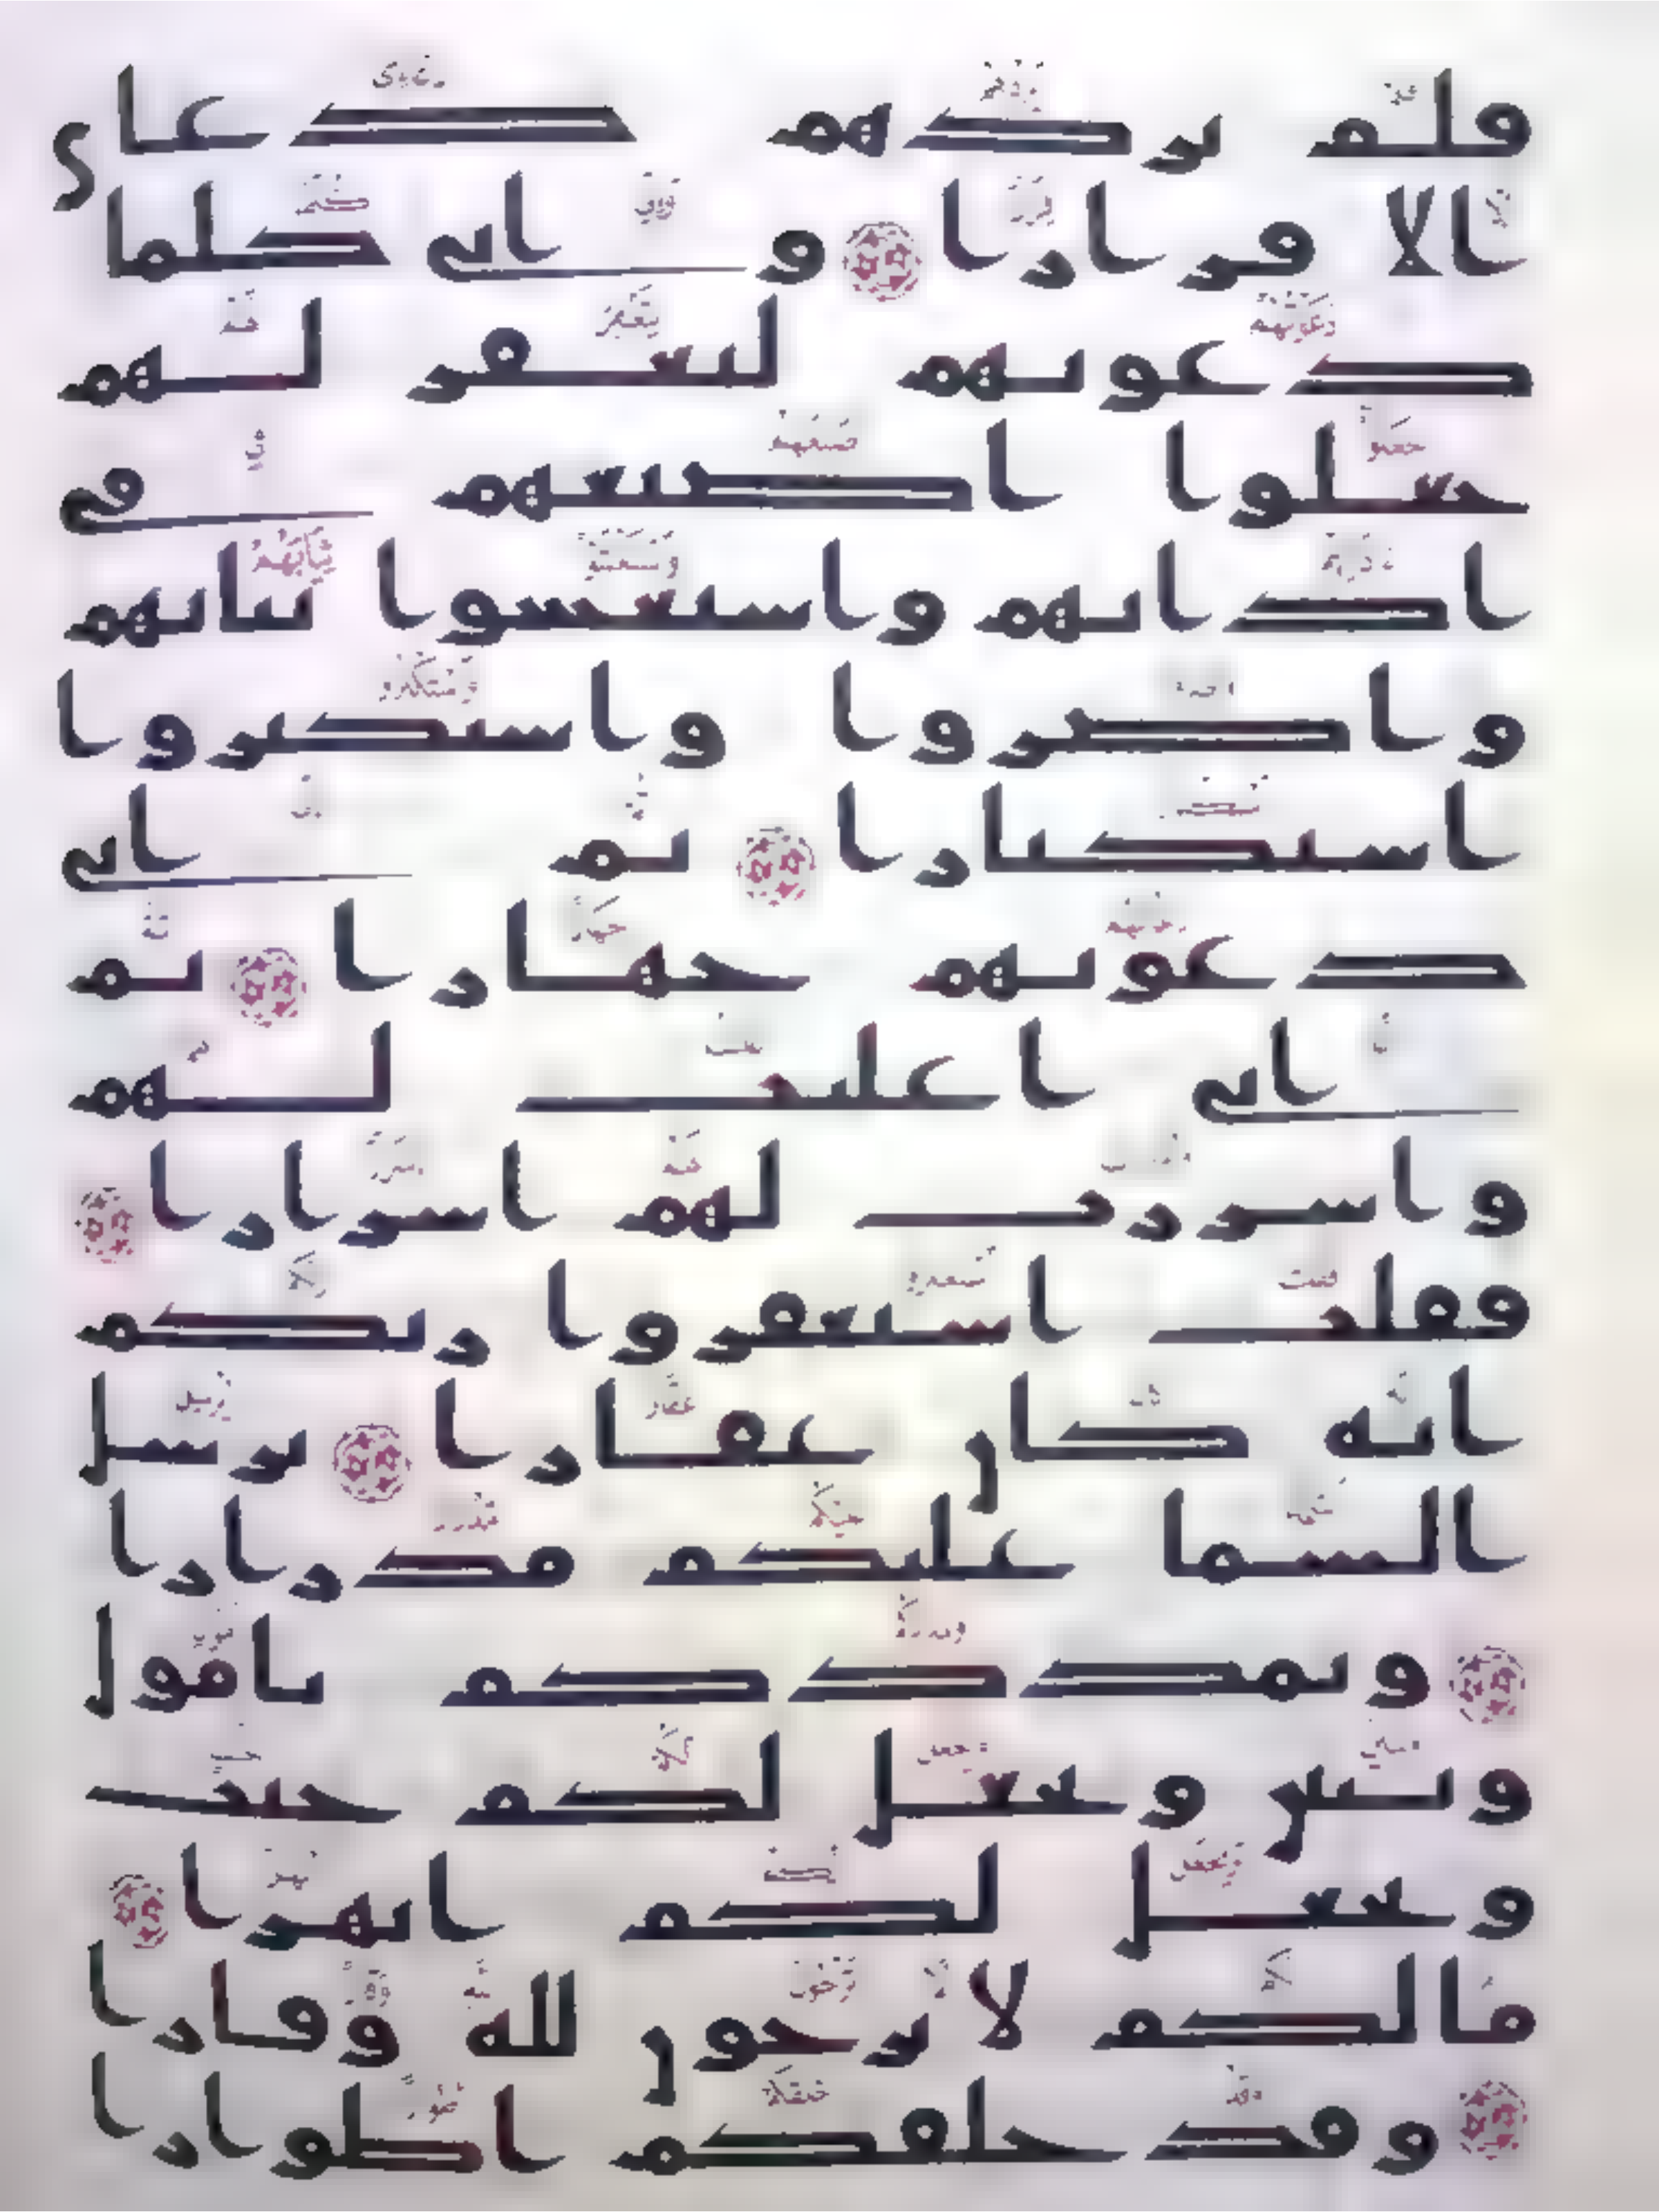 فلم يزدهم دعاي
الا فرارا واني كلما
دعوتهم لتغفر لهم
جعلوا اصبعهم في
اذانهم واستغشوا ثيابهم
واصروا واستكبروا
استكبارا ثم اني
دعوتهم جهارا ثم
اني اعلنت لهم
واسررت لهم اسرارا
فقلت استغفروا ربكم
انه كان غفارا يرسل
السما عليكم مدرارا
ويمددكم بامول
وبنين ويجعل لكم جنت
ويجعل لكم انهرا
مالكم لا ترجون لله وقارا
وقد خلقكم اطوارا